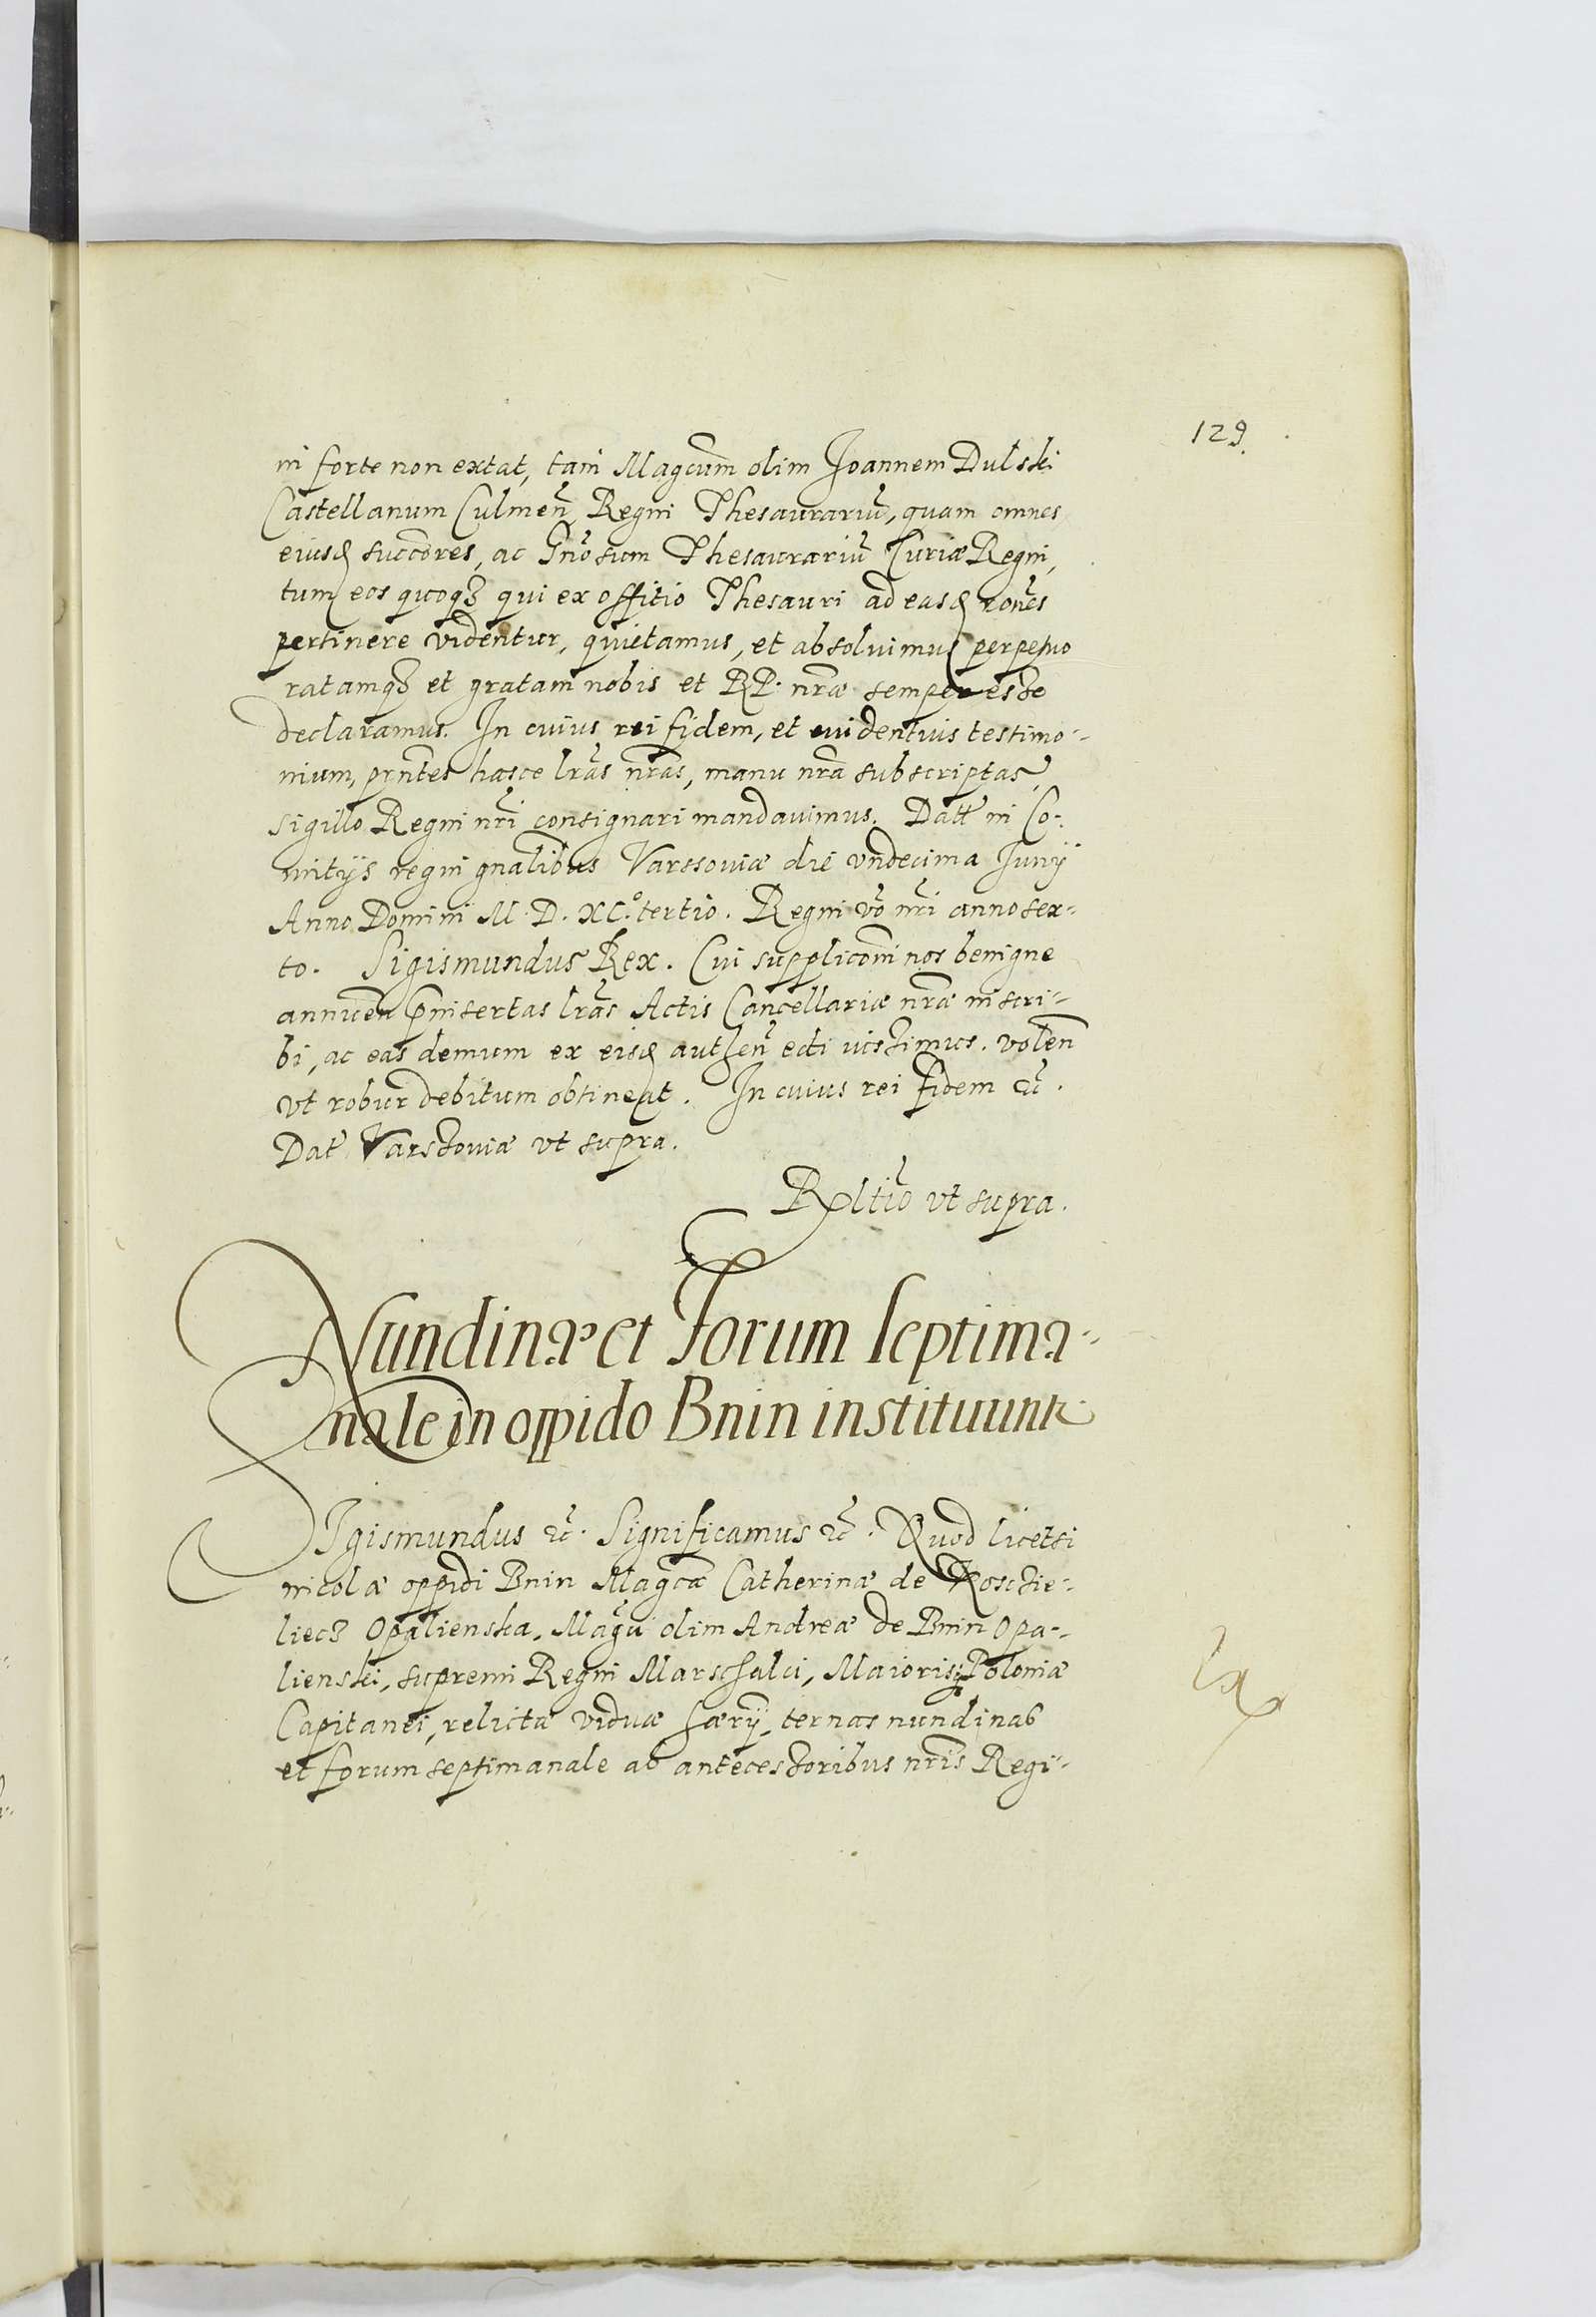 129.
in forte non extat, tam Magcum olim Joannem Dulski
Castellanum Culmeñ Regni Thesaurariũ, quam omnes
eiusd succores, ac Gnosum Thesaurariũ Curiæ Regni,
tum eos quoqз qui ex offitio Thesauri ad easd rones
pertinere videntur, quietamus, et absoluimus perpetuo
ratamqз et gratam nobis et RP. nræ semper esse
declaramus. In cuius rei fidem, et euidentius testimo-
nium, prntes hasce lras nras, manu nra subscriptas,
sigillo Regni nri consignari mandauimus. Datt in Co-
mitijs regni gnalibus Varssouiæ die vndecima Junij
Anno Domini M. D. XC.º tertio. Regni vo nri anno sex-
to. Sigismundus Rex. Cui suppliconi nos benigne
annuen pnisertas lras Actis Cancellariæ nræ inscri-
bi, ac eas demum ex eisd autheñ edi iussimus. volen
vt robur debitum obtineat. In cuius rei fidem &c.
Dat Varssouiæ vt supra.
Rltio vt supra.
Nundinæ et Forum septima-
nale in oppido Bnin instituunt
SIgismundus &c. Significamus &c. Quod licet si
incolæ oppidi Bnin Magcæ Catherinæ de Koscie-
liecz Opalienska, Magci olim Andreæ de Bnin Opa-
lienski, supremi Regni Marschalci, Maiorisq Poloniæ
Capitanei, relictæ viduæ hærij, ternas nundinas
et forum septimanale ab antecessoribus nris Regi-